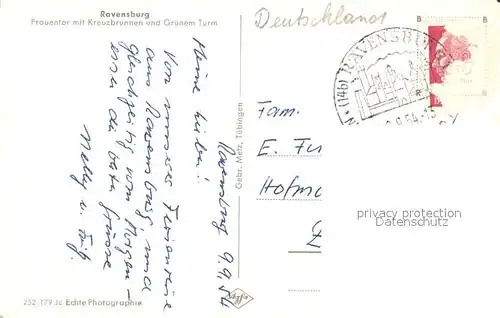 Ravensburg
Frauentor mit Kreuzbrunnen und Grünem Turm
Deutschland
(14b) RAVENSBURG
9.9.54-15
Ravensburg 9.9.54
Meine Lieben!
Von unserer Ferienreise
aus Ravensburg und
gleichzeitig vom Morgen-
essen die besten Grüsse
Nelly u.
Gebr. Metz, Tübingen
Fam.
E.
privacy protection
Datenschutz
252 179 Jc Echte Photographie
Agfa